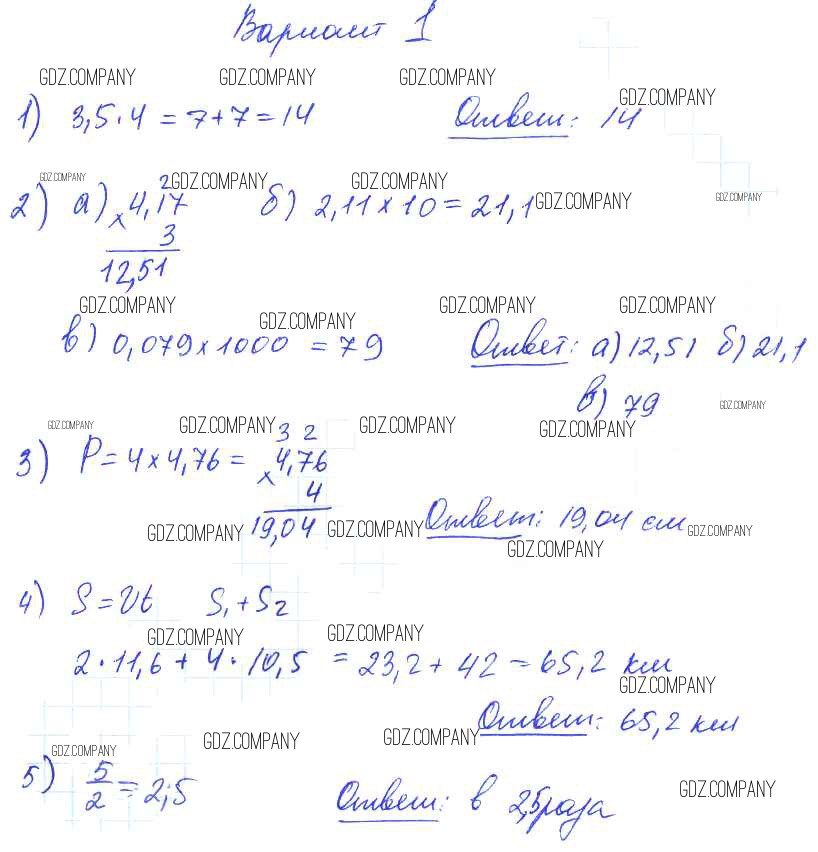 Вариант 1
GDZ.COMPANY GDZ.COMPANY GDZ.COMPANY
1) 3,5·4 = 7+7 = 14 Ответ: 14 GDZ.COMPANY
GDZ.COMPANY GDZ.COMPANY GDZ.COMPANY
2) а) × 4,17 б) 2,11 × 10 = 21,1 GDZ.COMPANY GDZ.COMPANY
2
3
12,51
GDZ.COMPANY GDZ.COMPANY GDZ.COMPANY GDZ.COMPANY
в) 0,079 × 1000 = 79 Ответ: а) 12,51 б) 21,1
в) 79 GDZ.COMPANY
GDZ.COMPANY GDZ.COMPANY GDZ.COMPANY GDZ.COMPANY
3 2
3) P = 4 × 4,76 = × 4,76
4
GDZ.COMPANY 19,04 GDZ.COMPANY Ответ: 19,04 см GDZ.COMPANY
GDZ.COMPANY
4) S = Vt S₁ + S₂
GDZ.COMPANY GDZ.COMPANY
2·11,6 + 4·10,5 = 23,2 + 42 = 65,2 км
GDZ.COMPANY
Ответ: 65,2 км
GDZ.COMPANY GDZ.COMPANY GDZ.COMPANY
5) 5/2 = 2,5 Ответ: в 2,5 раза GDZ.COMPANY